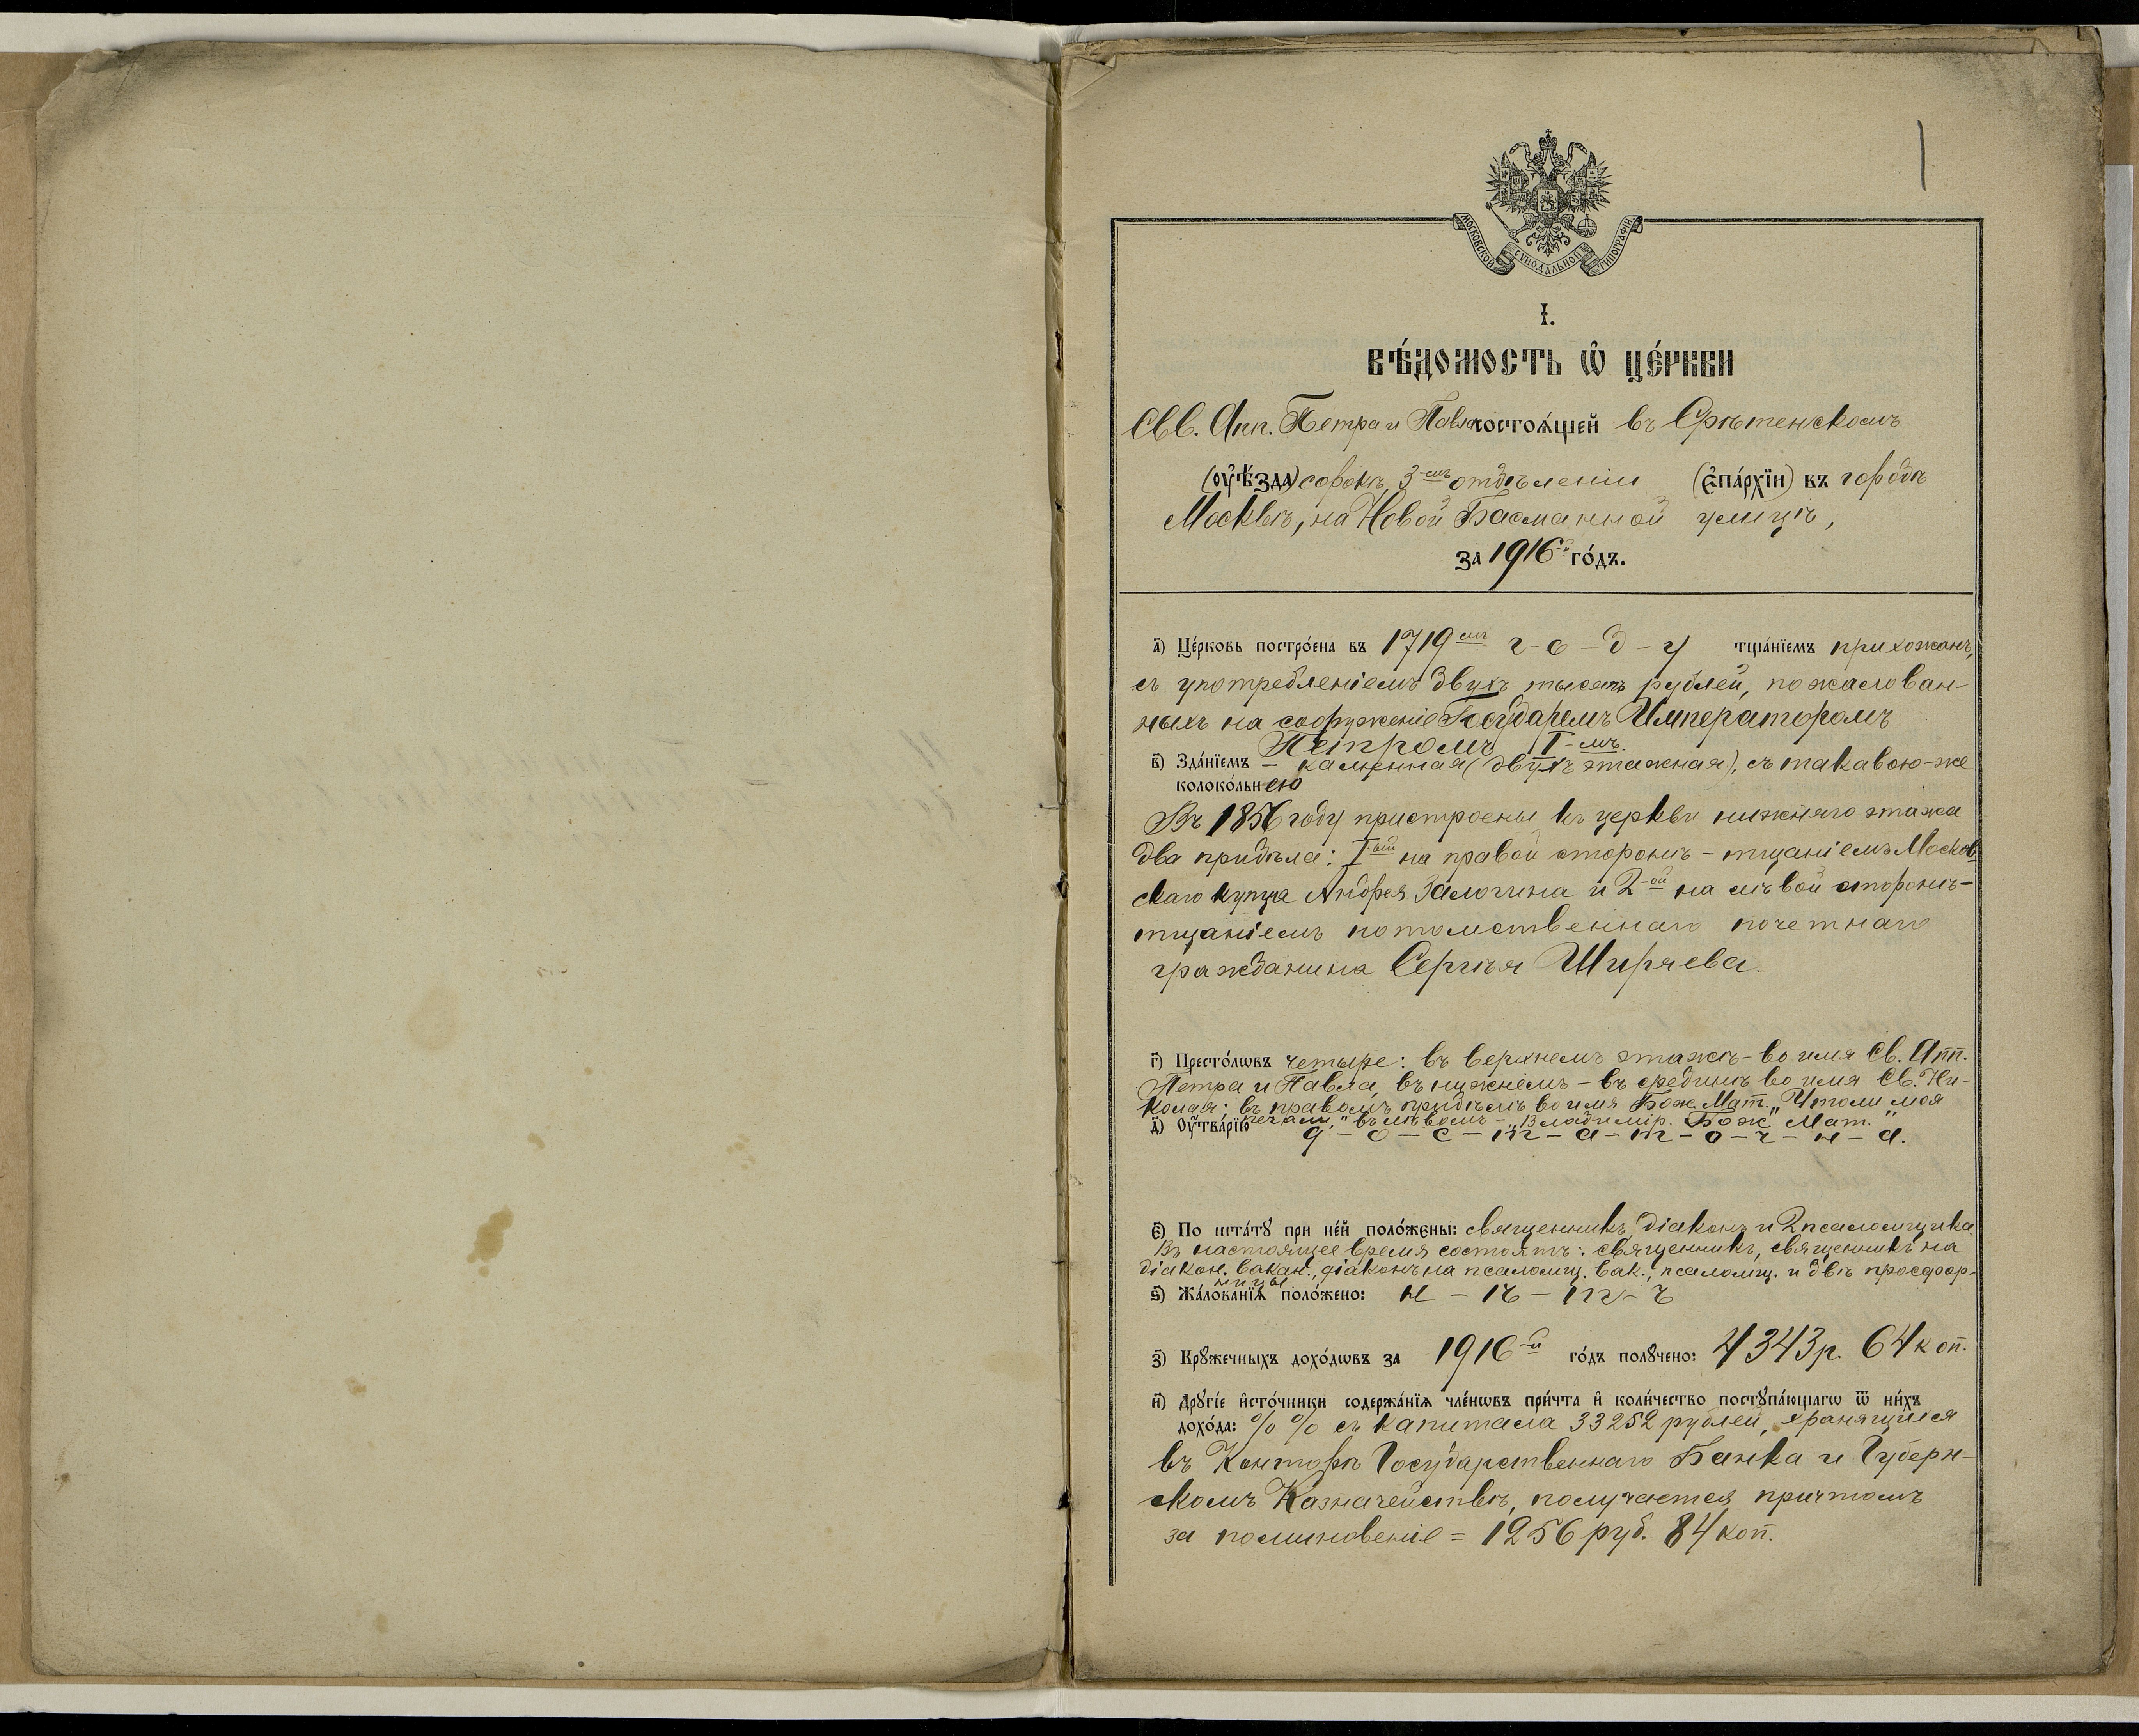 1
МОСКОВСКОЙ СѴНОДАЛЬНОЙ ТИПОГРАФІИ
І.
ВѢ́ДОМОСТЬ Ѡ҆ ЦЕ́РКВИ
Свв. Апп. Петра и Павла состоѧ́щей въ Срѣтенскомъ
(оу҆ѣ́зда) сорокѣ, 3-мъ отдѣленіи (є҆па́рхїи) въ городѣ
Москвѣ, на Новой Басманной улицѣ,
за 1916-й го́дъ.
а҃) Це́рковь постро́ена въ 1719-мъ г-о-д-у тща́нїемъ прихожанъ,
съ употребленіемъ двухъ тысячъ рублей, пожалован-
ныхъ на сооруженіе Государемъ Императоромъ
Петромъ I-мъ.
в҃) Зда́нїемъ – каменная (двухъэтажная), съ таковою-же
колоко́льнею
Въ 1856 году пристроены къ церкви нижняго этажа
два придѣла: I-ый на правой сторонѣ – тщаніемъ Москов-
скаго купца Андрея Залогина и 2-ой на лѣвой сторонѣ –
тщаніемъ потомственнаго почетнаго
гражданина Сергѣя Ширяева.
г҃) Престо́лѡвъ четыре: въ верхнемъ этажѣ – во имя Св. Апп.
Петра и Павла, въ нижнемъ – въ срединѣ во имя Св. Ни-
колая; въ правомъ придѣлѣ во имя Бож. Мат. „Утоли моя
печали," въ лѣвомъ – „Владимір. Бож. Мат."
д҃) Оу҆́тварїю д-о-с-т-а-т-о-ч-н-а.
є҃) По шта́тꙋ при не́й поло́жены: священникъ, діаконъ и 2 псаломщика
Въ настоящее время состоятъ: священникъ, священникъ на
діакон. вакан., діаконъ на псаломщ. вак., псаломщ. и двѣ просфор-
ницы
ѕ҃) Жа́лованїѧ поло́жено: н-ѣ-т-ъ
з҃) Крꙋ́жечныхъ дохо́дѡвъ за 1916-й го́дъ полꙋ́чено: 4343 р. 64 коп.
и҃) Дрꙋгі́е и҆сто́чники содержа́нїѧ чле́нѡвъ при́чта и҆ коли́чество постꙋпа́ющагѡ ѿ ни́хъ
дохо́да: %% съ капитала 33252 рублей, хранящихся
въ Конторѣ Государственнаго Банка и Губерн-
скомъ Казначействѣ, получается причтомъ
за поминовеніе = 1256 руб. 84 коп.